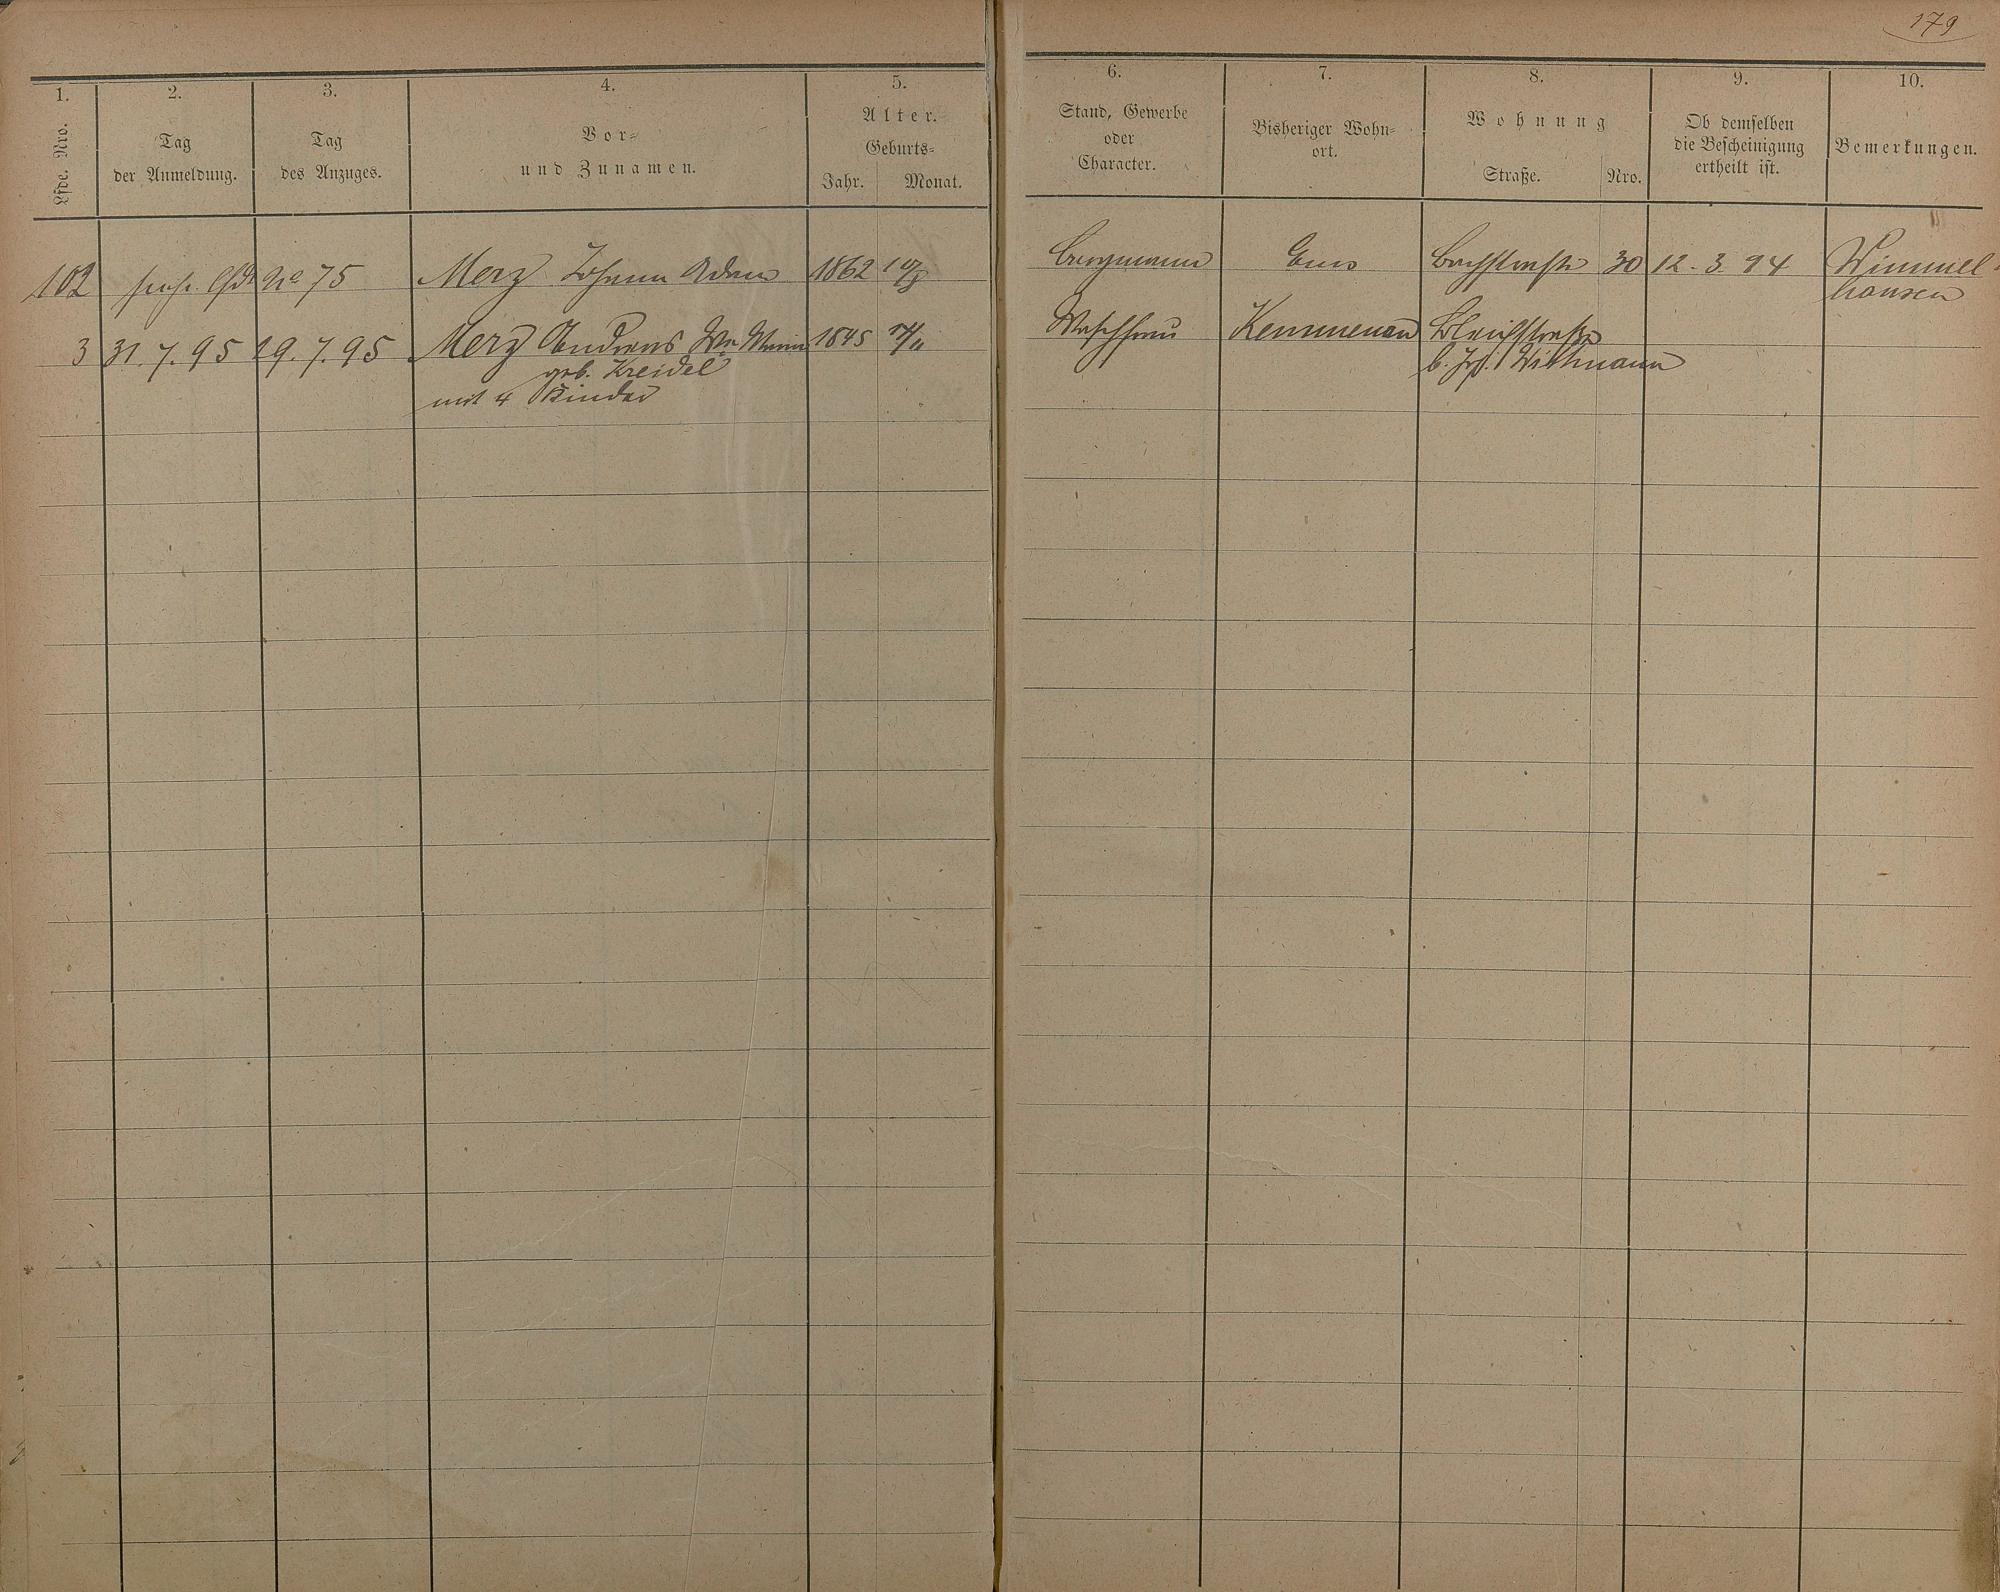 179
1. 2. 3. 4. 5. 6. 7. 8. 9. 10.
Lfde. Nro.
Tag
der Anmeldung.
Tag
des Anzuges.
Vor-
und Zunamen.
Alter.
Geburts-
Jahr. Monat.
Stand, Gewerbe
oder
Character.
Bisheriger Wohn-
ort.
Wohnung
Straße. Nro.
Ob demselben
die Bescheinigung
ertheilt ist.
Bemerkungen.
102 No 75 Merz Johann Adam 1862 10/8 Bergmann Ems Bachstraße 30 12. 3. 94 Wimmel-
hausen
3 31. 7. 95 29. 7. 95 Merz Andreas Ww Maria 1845 Waschfrau Kemmenau Bleichstraße
geb. Kreidel
b. Jos. Wittmann
mit 4 Kinder